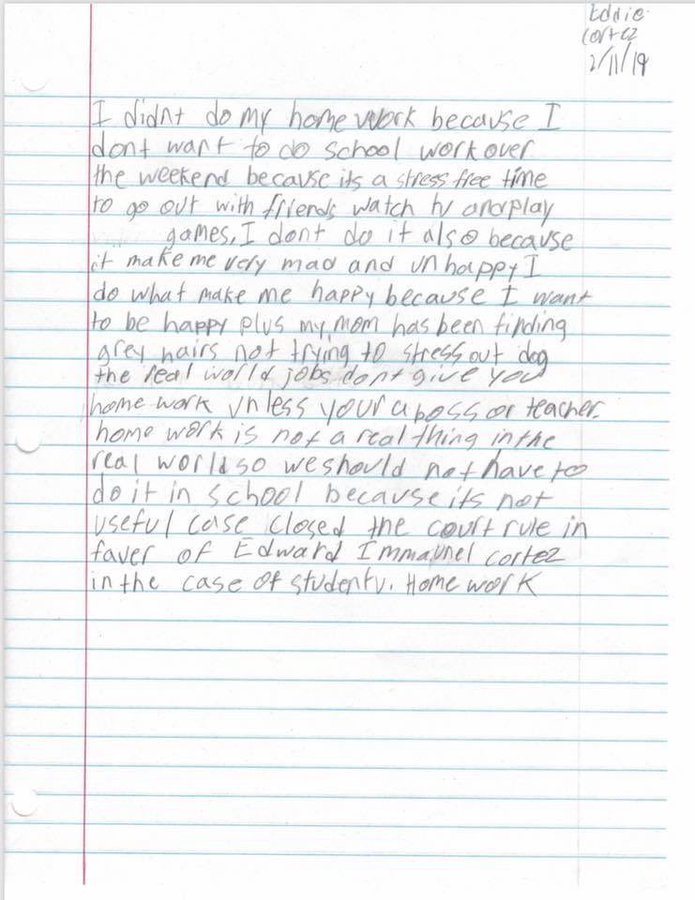 Eddie
Cortez
2/11/19
I didnt do my home work because I
dont want to do school work over
the weekend because its a stress free time
to go out with friends watch tv and play
games, I dont do it also because
it make me very mad and unhappy I
do what make me happy because I want
to be happy plus my mom has been finding
grey hairs not trying to stress out dog
the real world jobs dont give you
home work unless your a boss or teacher.
home work is not a real thing in the
real world so we should not have to
do it in school because its not
useful case closed the court rule in
faver of Edward Immaunel cortez
in the case of student v. Home work